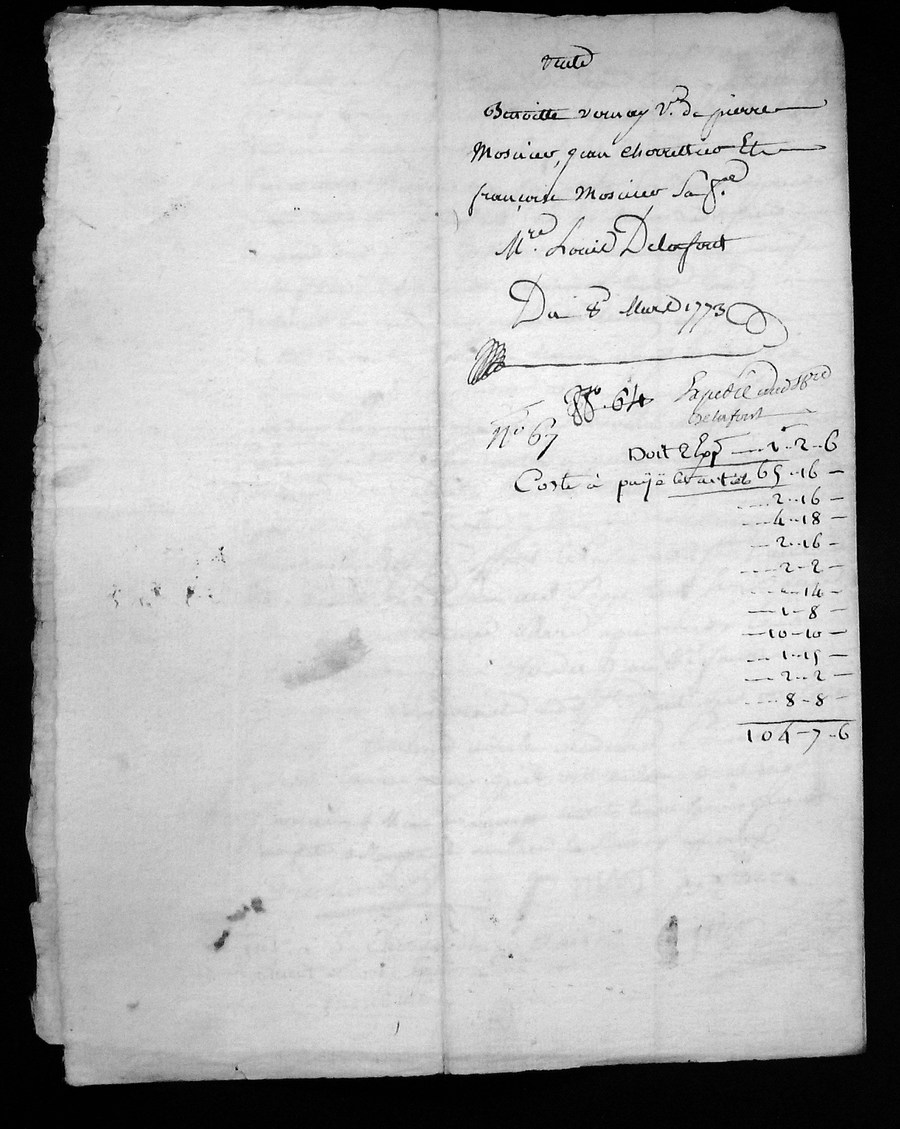 Vente
Benoitte vernay Ve. de pierre
Mosnier, jean chorettier Et
françoise Mosnier Sa fe.
Mre. Louis Delafont
Du 8 Mars 1773
No. 64 Expedié
No 67 Delafont
Doit 2 Exp 1-2-6
Coste à payé 65-16-
2-16-
4-18-
2-16-
2-2-
-14-
1-8-
10-10-
1-15-
2-2-
8-8-
104-7-6